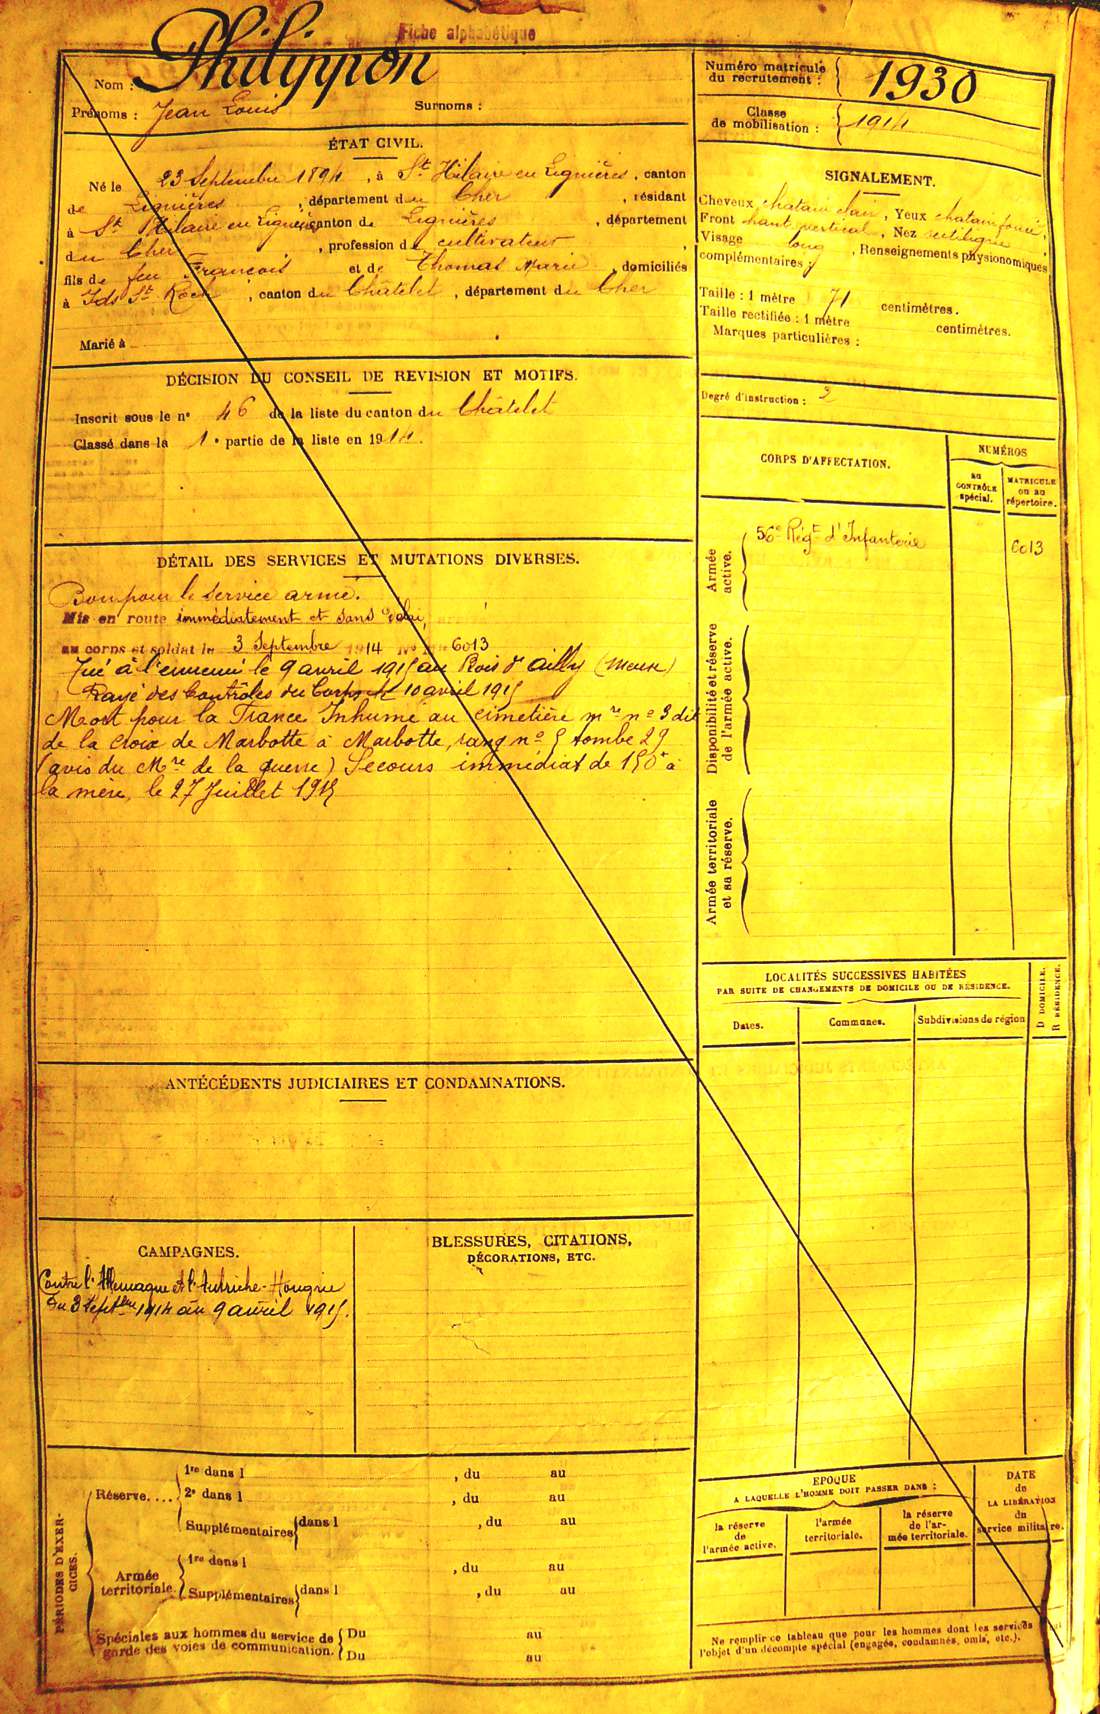 Fiche alphabétique
Nom : Philippon
Prénoms : Jean Louis Surnoms :
Numéro matricule du recrutement : 1930
Classe de mobilisation : 1914
ÉTAT CIVIL.
Né le 23 Septembre 1894, à St Hilaire en Lignières, canton
de Lignières, département du Cher, résidant
à St Hilaire en Lignières canton de Lignières, département
du Cher, profession de cultivateur,
fils de feu François et de Thomas Marie, domiciliés
à Ids St Roch, canton du Châtelet, département du Cher
Marié à
SIGNALEMENT.
Cheveux chatain clair, Yeux chatain foncé,
Front haut vertical, Nez rectiligne
Visage long, Renseignements physionomiques
complémentaires :
Taille : 1 mètre 71 centimètres.
Taille rectifiée : 1 mètre centimètres.
Marques particulières :
Degré d'instruction : 3
DÉCISION DU CONSEIL DE REVISION ET MOTIFS.
Inscrit sous le n° 46 de la liste du canton du Châtelet
Classé dans la 1e partie de la liste en 1914.
CORPS D'AFFECTATION.
NUMÉROS
au CONTRÔLE spécial.
MATRICULE ou au répertoire.
Armée active.
56e Régt d'Infanterie 6013
Disponibilité et réserve de l'armée active.
Armée territoriale et sa réserve.
DÉTAIL DES SERVICES ET MUTATIONS DIVERSES.
Bon pour le service armé.
Mis en route immédiatement et sans délai,
au corps et soldat le 3 Septembre 1914 6013
Tué à l'ennemi le 9 avril 1915 au Bois d'Ailly (Meuse)
Rayé des Contrôles du Corps le 10 avril 1915
Mort pour la France Inhumé au cimetière mre n° 3 dit
de la croix de Marbotte à Marbotte, rang n° 5 tombe 29
(avis du Mre de la guerre) Secours immédiat de 150f à
la mère, le 27 Juillet 1915
LOCALITÉS SUCCESSIVES HABITÉES
PAR SUITE DE CHANGEMENTS DE DOMICILE OU DE RÉSIDENCE.
Dates. Communes. Subdivisions de région
D DOMICILE.
R RÉSIDENCE.
ANTÉCÉDENTS JUDICIAIRES ET CONDAMNATIONS.
CAMPAGNES.
Contre l'Allemagne et l'Autriche-Hongrie
du 3 Septbre 1914 au 9 avril 1915.
BLESSURES, CITATIONS,
DÉCORATIONS, ETC.
PÉRIODES D'EXERCICES.
Réserve....
1re dans l , du au
2e dans l , du au
Supplémentaires dans l , du au
Armée territoriale.
1re dans l , du au
Supplémentaires dans l , du au
Spéciales aux hommes du service de garde des voies de communication.
Du au
Du au
EPOQUE
A LAQUELLE L'HOMME DOIT PASSER DANS :
la réserve de l'armée active.
l'armée territoriale.
la réserve de l'armée territoriale.
DATE de LA LIBÉRATION du service militaire.
Ne remplir ce tableau que pour les hommes dont les services
l'objet d'un décompte spécial (engagés, condamnés, omis, etc.).